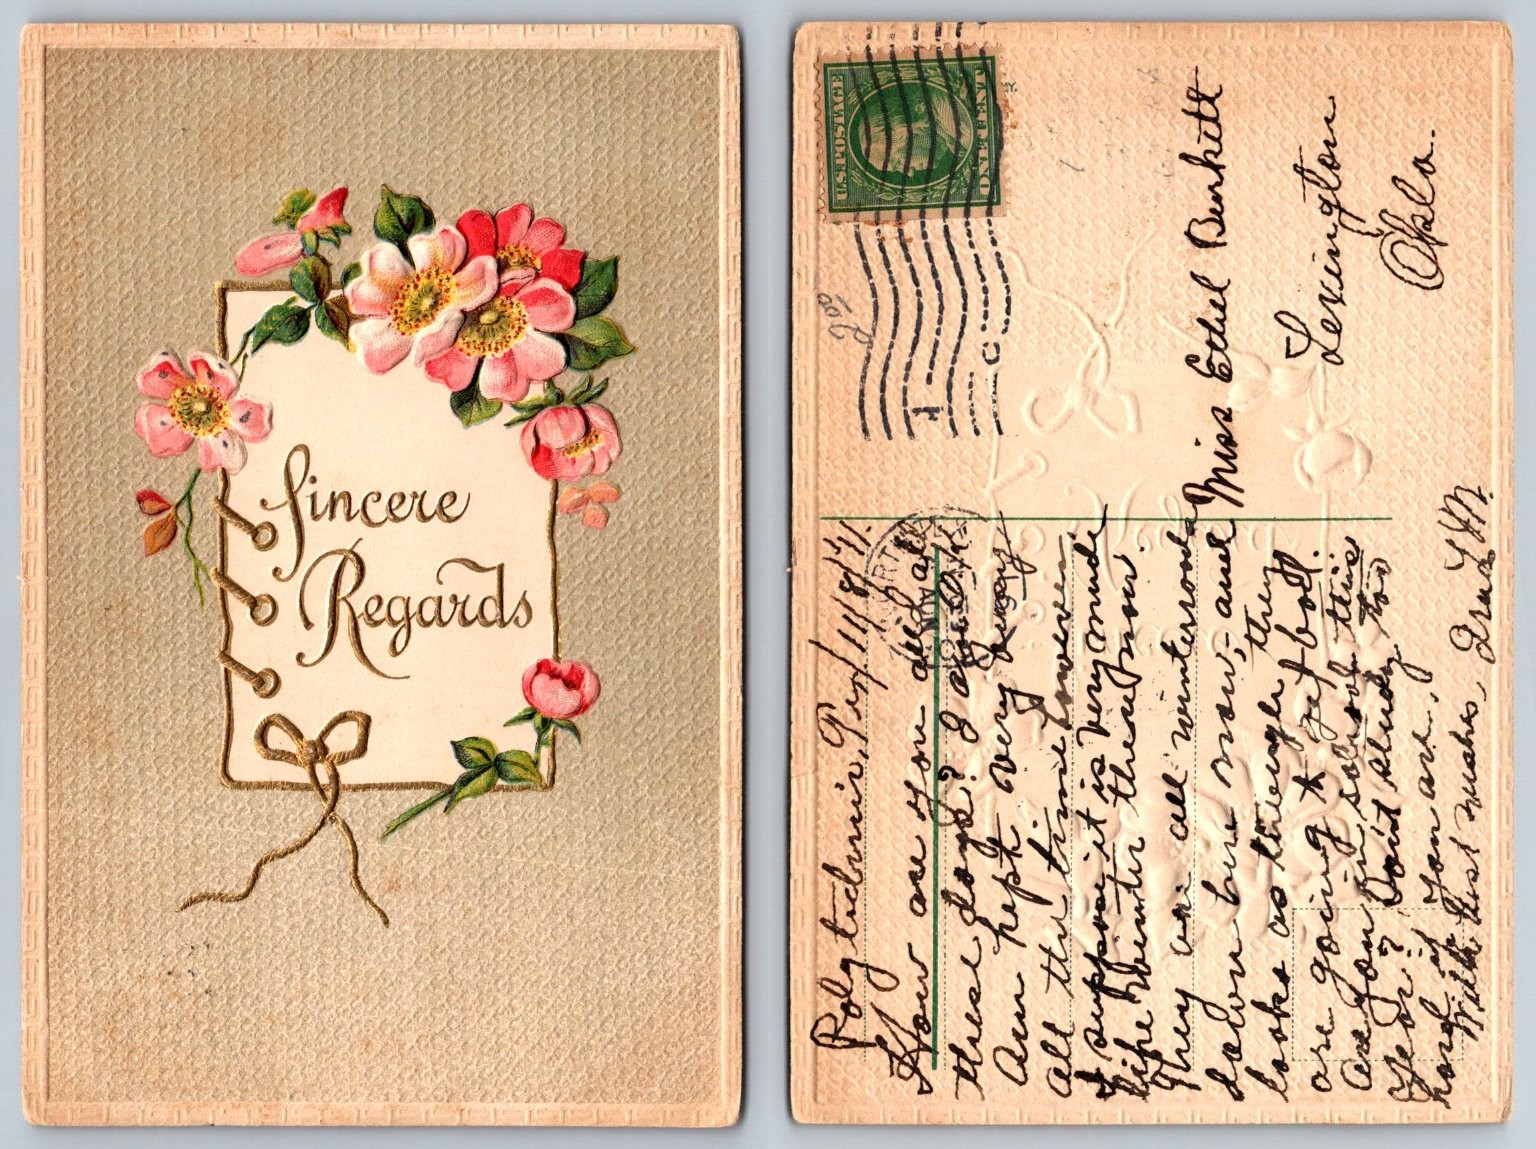 Sincere
Regards
U.S. POSTAGE
ONE CENT
Miss Ethel Burkett
Lexington
Okla.
Polytechnic, 11/18/11.
How are you all at
these days? I
am kept very busy
all the time however
I suppose it is very much
like winter there now.
They are all winter
down here now, and
looks as though they
are going to foot ball.
Are you in school this
Year? Don't study too
hard if You are,
With best wishes